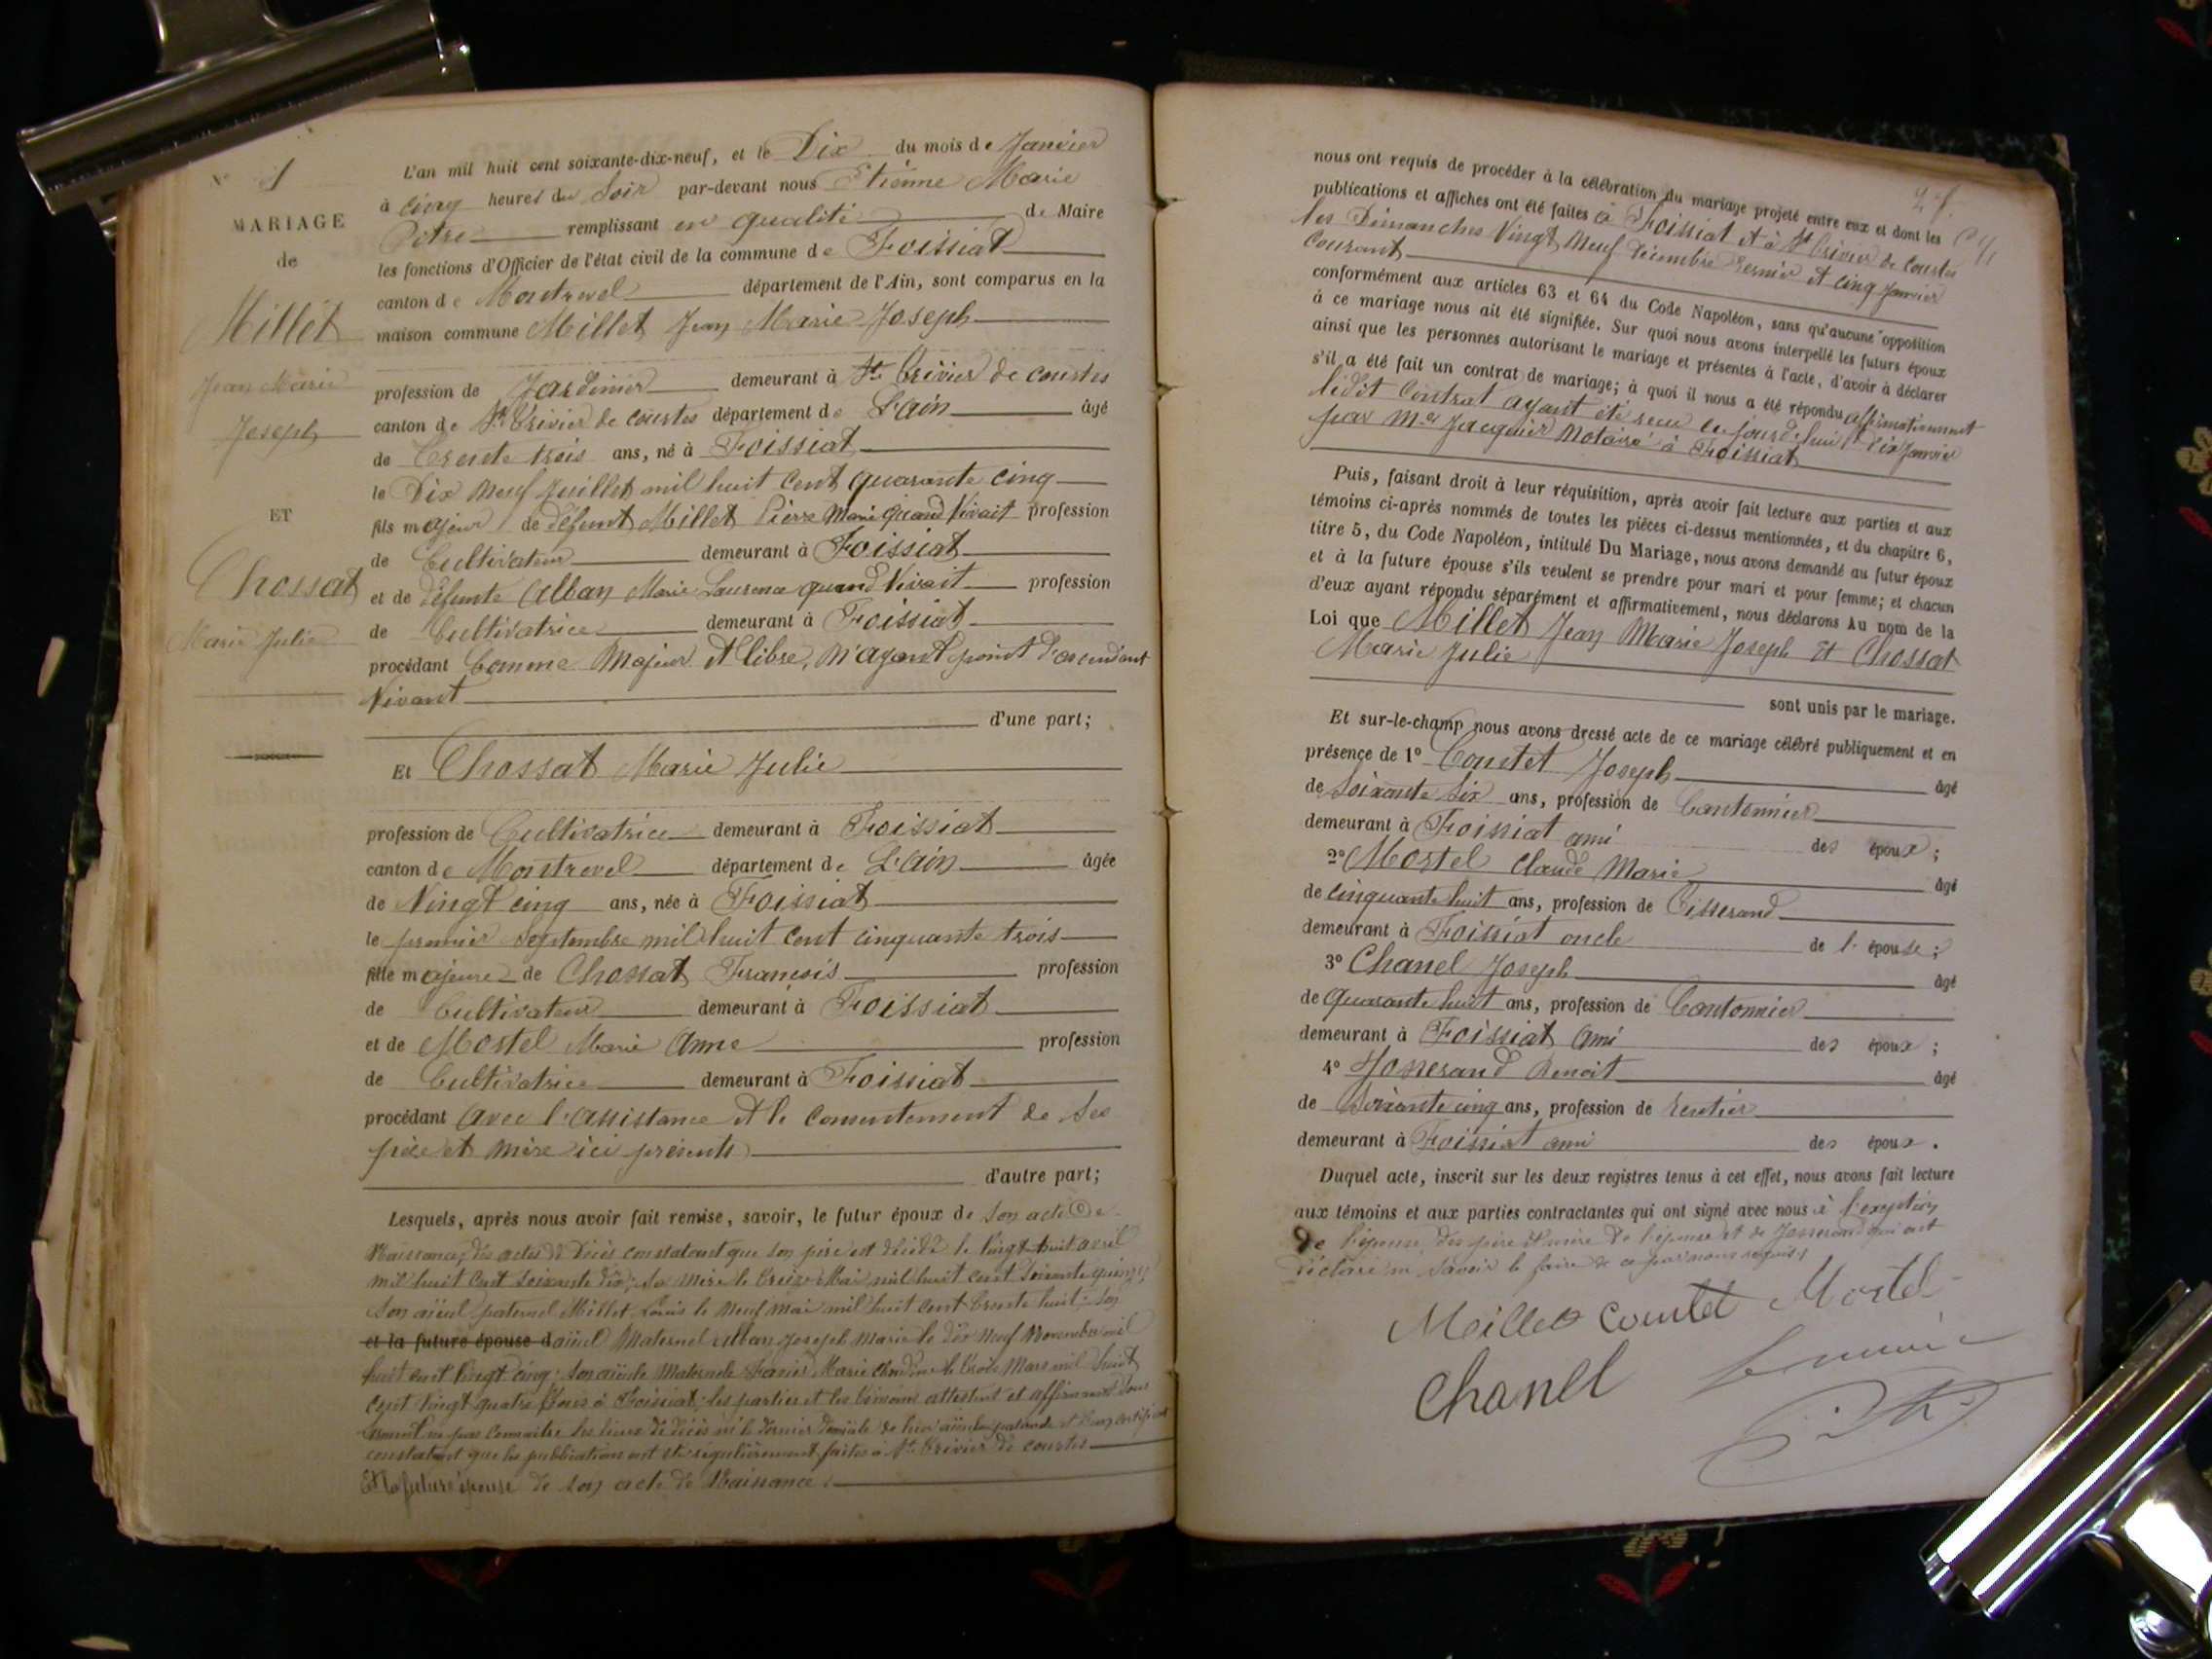 N° 1
MARIAGE
de
Millet
Jean Marie
Joseph
ET
Chossat
Marie Julie
L'an mil huit cent soixante-dix-neuf, et le Dix du mois de Janvier
à cinq heures du Soir par-devant nous Etienne Marie
Pitre remplissant en qualité de Maire
les fonctions d'Officier de l'état civil de la commune de Foissiat
canton de Montrevel département de l'Ain, sont comparus en la
maison commune Millet Jean Marie Joseph
profession de Jardinier demeurant à St Trivier de courtes
canton de St Trivier de courtes département de L'ain âgé
de Trente trois ans, né à Foissiat
le Dix Neuf Juillet mil huit Cent quarante cinq
fils majeur de défunt Millet Pierre Marie quand Vivait profession
de Cultivateur demeurant à Foissiat
et de défunte Alban Marie Laurence quand Vivait profession
de Cultivatrice demeurant à Foissiat
procédant Comme Majeur et libre, N'ayant point d'ascendant
Vivant
d'une part;
Et Chossat Marie Julie
profession de Cultivatrice demeurant à Foissiat
canton de Montrevel département de L'ain âgée
de Vingt cinq ans, née à Foissiat
le premier Septembre mil huit cent cinquante trois
fille majeure de Chossat Francois profession
de Cultivateur demeurant à Foissiat
et de Mostel Marie Anne profession
de Cultivatrice demeurant à Foissiat
procédant avec l'assistance et le consentement de ses
père et mère ici présents
d'autre part;
Lesquels, après nous avoir fait remise, savoir, le futur époux de son acte de
Naissance, des actes de décès constatant que son père est décédé le Vingt huit avril
mil huit cent soixante dix; sa mère le treize Mai mil huit cent soixante quinze
son aïeul paternel Millet Louis le neuf mai mil huit cent trente huit; son
et la future épouse d aïeul Maternel Alban Joseph Marie le dix Neuf Novembre mil
huit cent Vingt cinq; son aïeule Maternelle Marie Claudine le trois Mars mil huit
cent vingt quatre tous à Foissiat; les parties et les témoins attestent et affirment
ne pas connaître les lieux de décès ni le dernier domicile de leur aïeule paternelle et
constatant que les publications ont été régulièrement faites à St Trivier de courtes
Et la future épouse de son acte de Naissance.
nous ont requis de procéder à la célébration du mariage projeté entre eux et dont les
publications et affiches ont été faites à Foissiat et à St Trivier de Courtes
les Dimanches Vingt Neuf Décembre Dernier et cinq Janvier
Courant
conformément aux articles 63 et 64 du Code Napoléon, sans qu'aucune opposition
à ce mariage nous ait été signifiée. Sur quoi nous avons interpellé les futurs époux
ainsi que les personnes autorisant le mariage et présentes à l'acte, d'avoir à déclarer
s'il a été fait un contrat de mariage; à quoi il nous a été répondu affirmativement
ledit Contrat ayant été recu ce jourd'hui dix Janvier
par Me Jacquier Notaire à Foissiat
Puis, faisant droit à leur réquisition, après avoir fait lecture aux parties et aux
témoins ci-après nommés de toutes les pièces ci-dessus mentionnées, et du chapitre 6,
titre 5, du Code Napoléon, intitulé Du Mariage, nous avons demandé au futur époux
et à la future épouse s'ils veulent se prendre pour mari et pour femme; et chacun
d'eux ayant répondu séparément et affirmativement, nous déclarons Au nom de la
Loi que Millet Jean Marie Joseph Et Chossat
Marie Julie
sont unis par le mariage.
Et sur-le-champ nous avons dressé acte de ce mariage célébré publiquement et en
présence de 1° Coutet Joseph âgé
de Soixante Six ans, profession de Cantonnier
demeurant à Foissiat ami des époux;
2° Mostel Claude Marie âgé
de cinquante huit ans, profession de Tisserand
demeurant à Foissiat oncle de l'épouse;
3° Chanel Joseph âgé
de quarante huit ans, profession de Cantonnier
demeurant à Foissiat Ami des époux;
4° Josserand Benoit âgé
de Soixante cinq ans, profession de rentier
demeurant à Foissiat ami des époux.
Duquel acte, inscrit sur les deux registres tenus à cet effet, nous avons fait lecture
aux témoins et aux parties contractantes qui ont signé avec nous à l'exception
de l'épouse, des père et mère de l'épouse et de Josserand qui ont
déclaré ne savoir le faire de ce par nous requis
Millet Coutet Mostel
Chanel